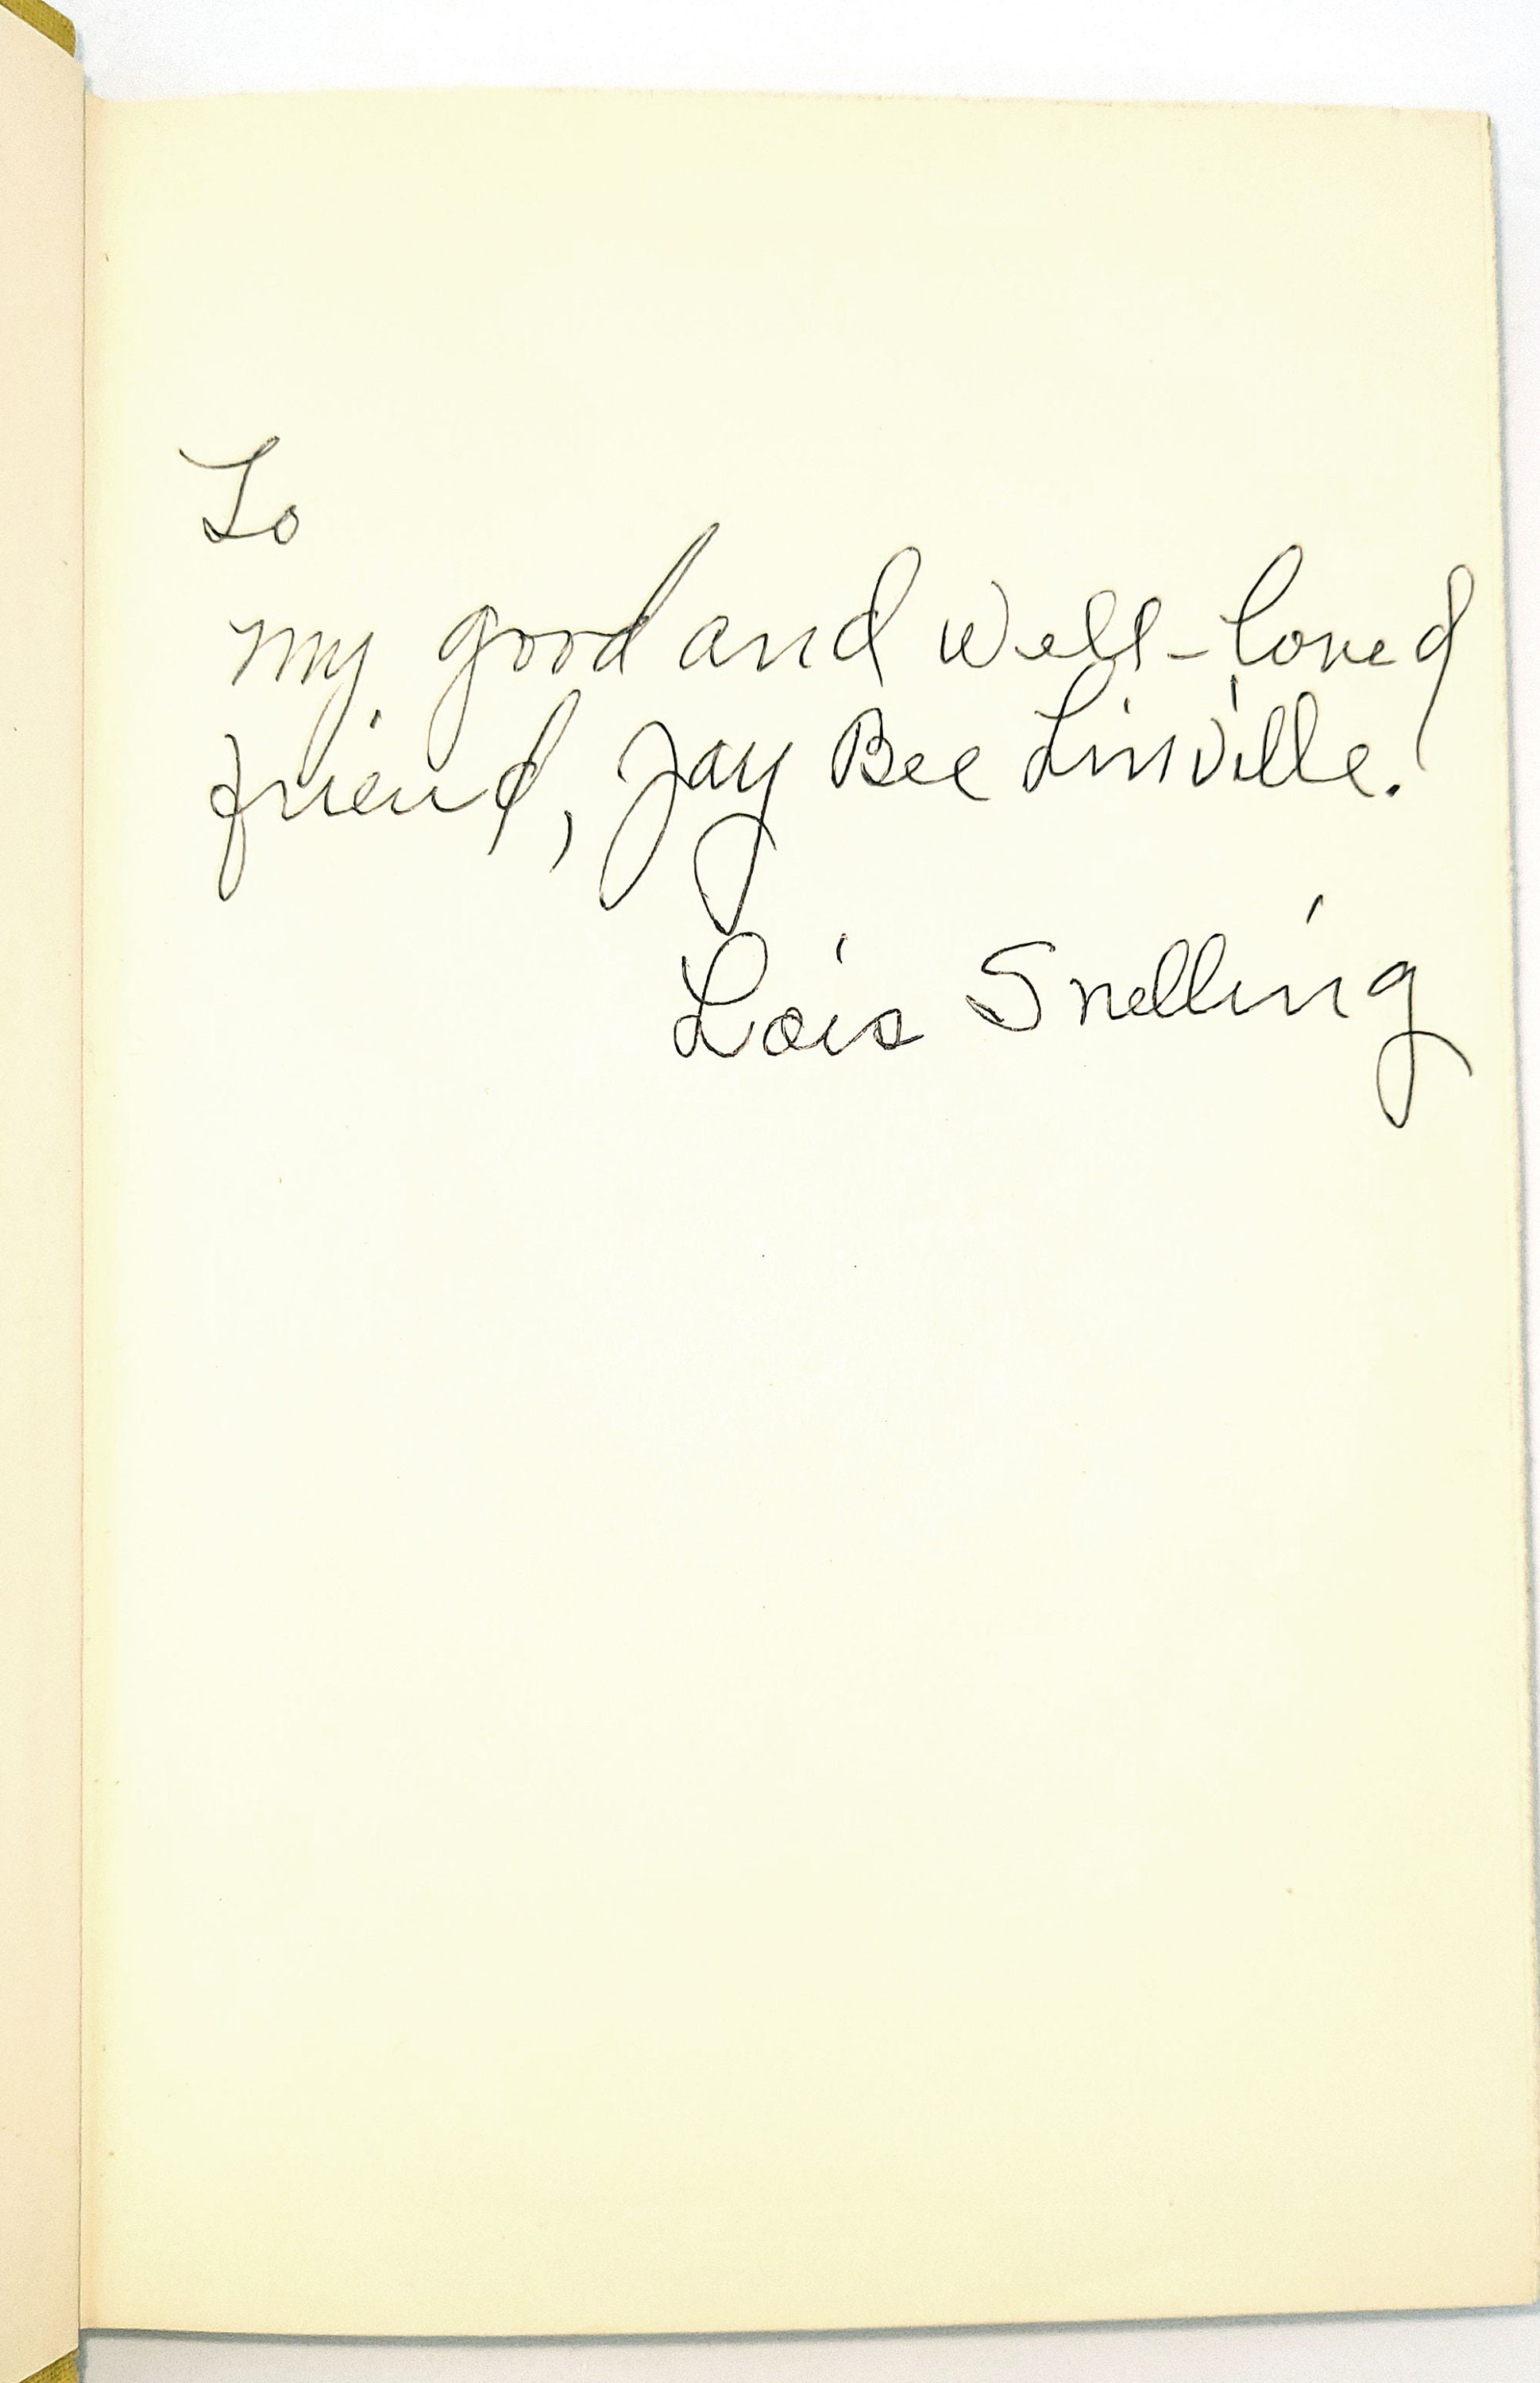 To
my good and well-loved
friend, Jay Bee Linville.
Lois Snelling